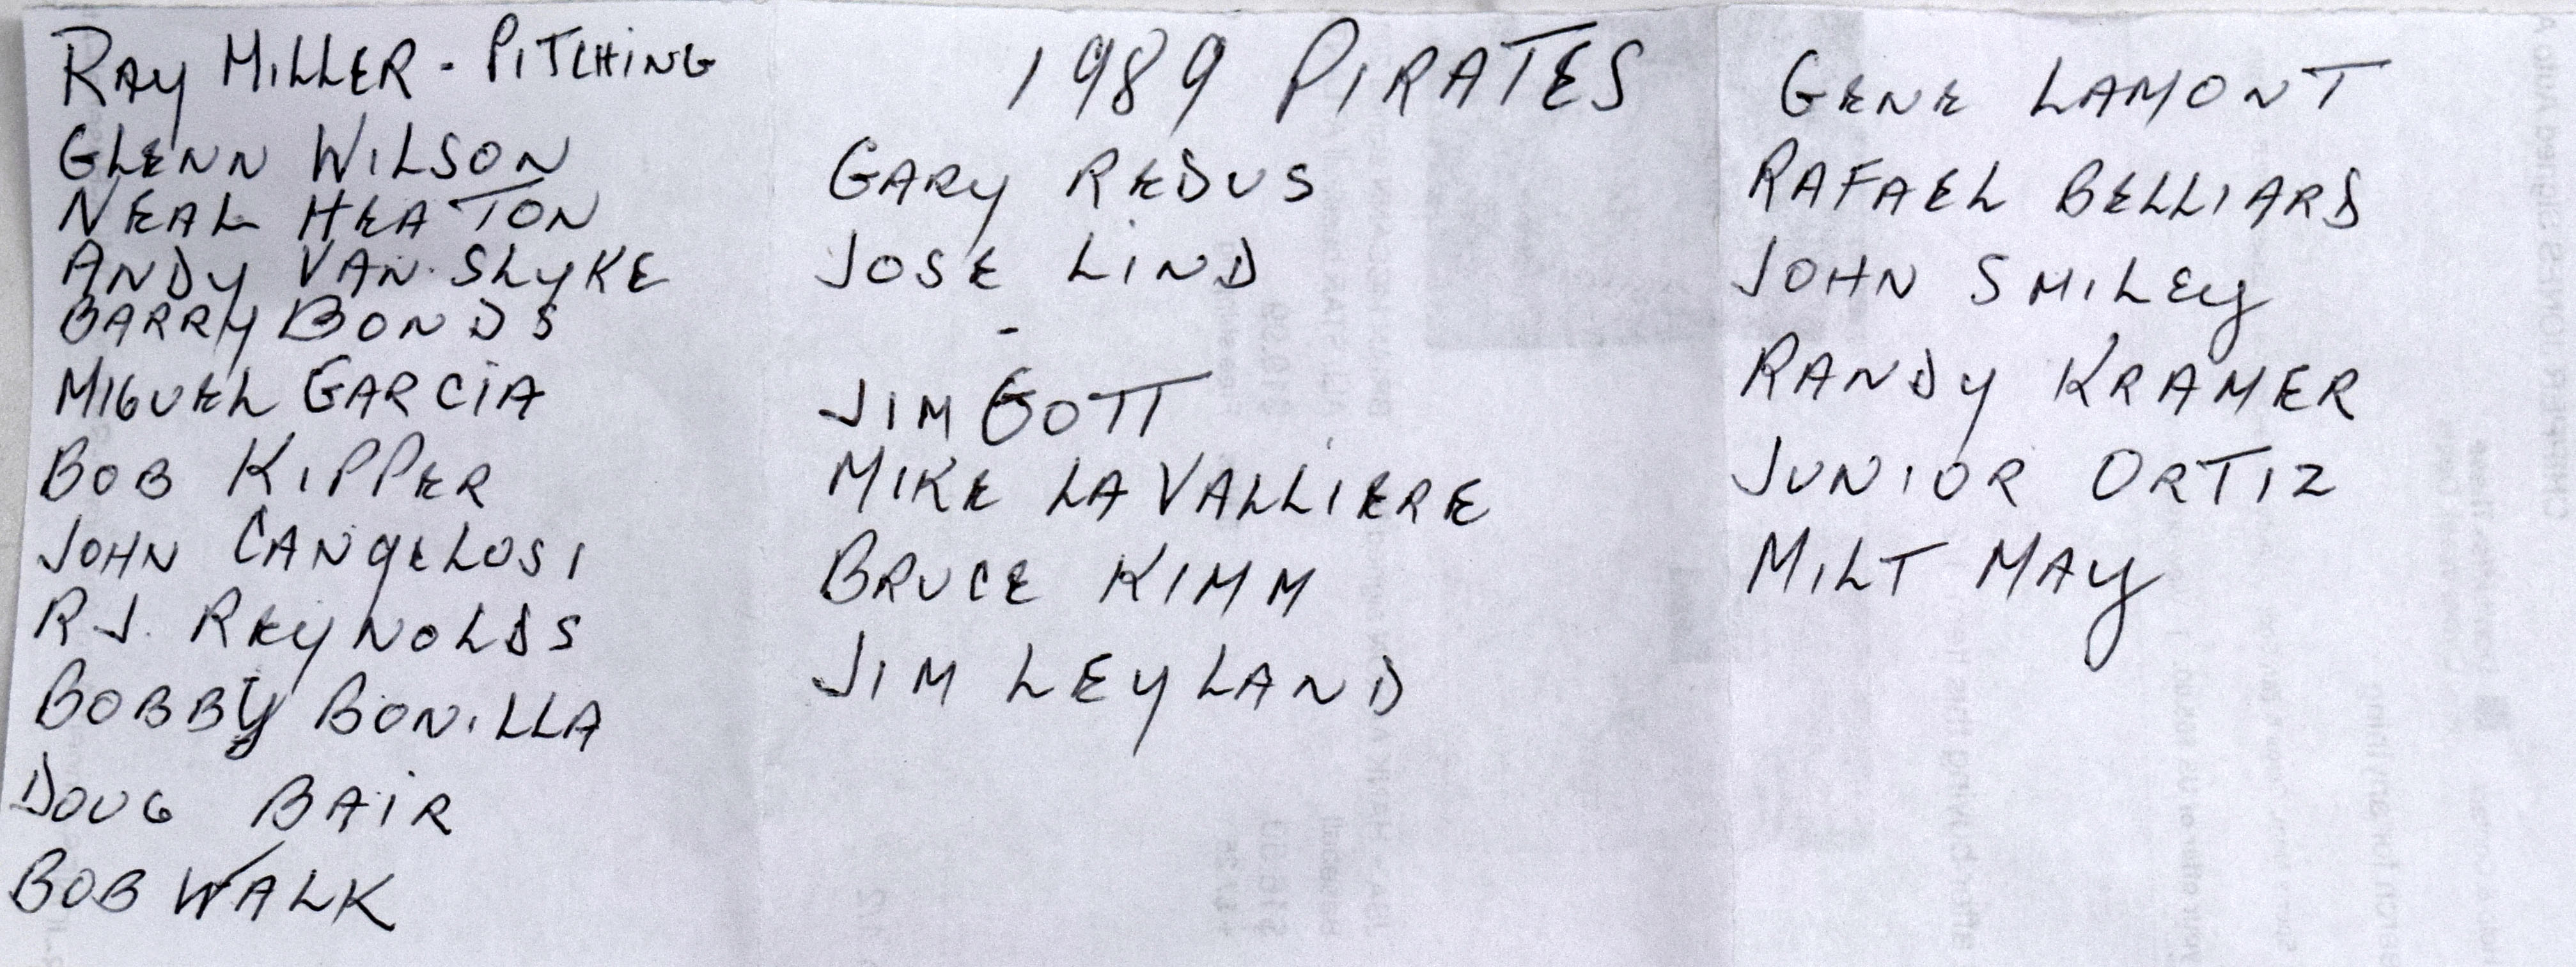 RAY MILLER - PITCHING
GLENN WILSON
NEAL HEATON
ANDY VAN SLYKE
BARRY BONDS
MIGUEL GARCIA
BOB KIPPER
JOHN CANGELOSI
R.J. REYNOLDS
BOBBY BONILLA
DOUG BAIR
BOB WALK
1989 PIRATES
GARY REDUS
JOSE LIND
-
JIM GOTT
MIKE LAVALLIERE
BRUCE KIMM
JIM LEYLAND
GENE LAMONT
RAFAEL BELLIARD
JOHN SMILEY
RANDY KRAMER
JUNIOR ORTIZ
MILT MAY